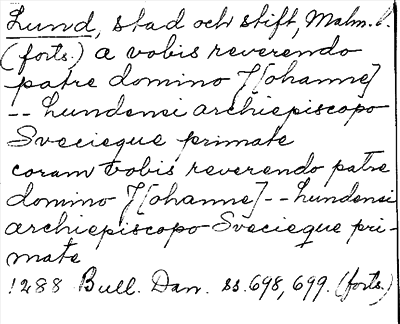 Lund, stad och stift, Malm. l.
(forts.) a vobis reverendo
patre domino J[ohanne]
-- lundensi archiepiscopo
Svecieque primate
coram vobis reverendo patre
domino J[ohanne] -- lundensi
archiepiscopo Svecieque pri-
mate
1288 Bull. Dan. ss. 698, 699. (forts.)